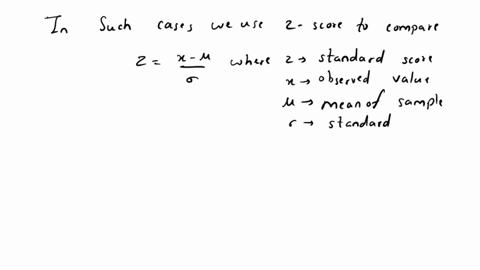 In Such cases we use z-score to compare
z = (x-μ)/σ where z → standard score
x → observed value
μ → mean of sample
σ → standard